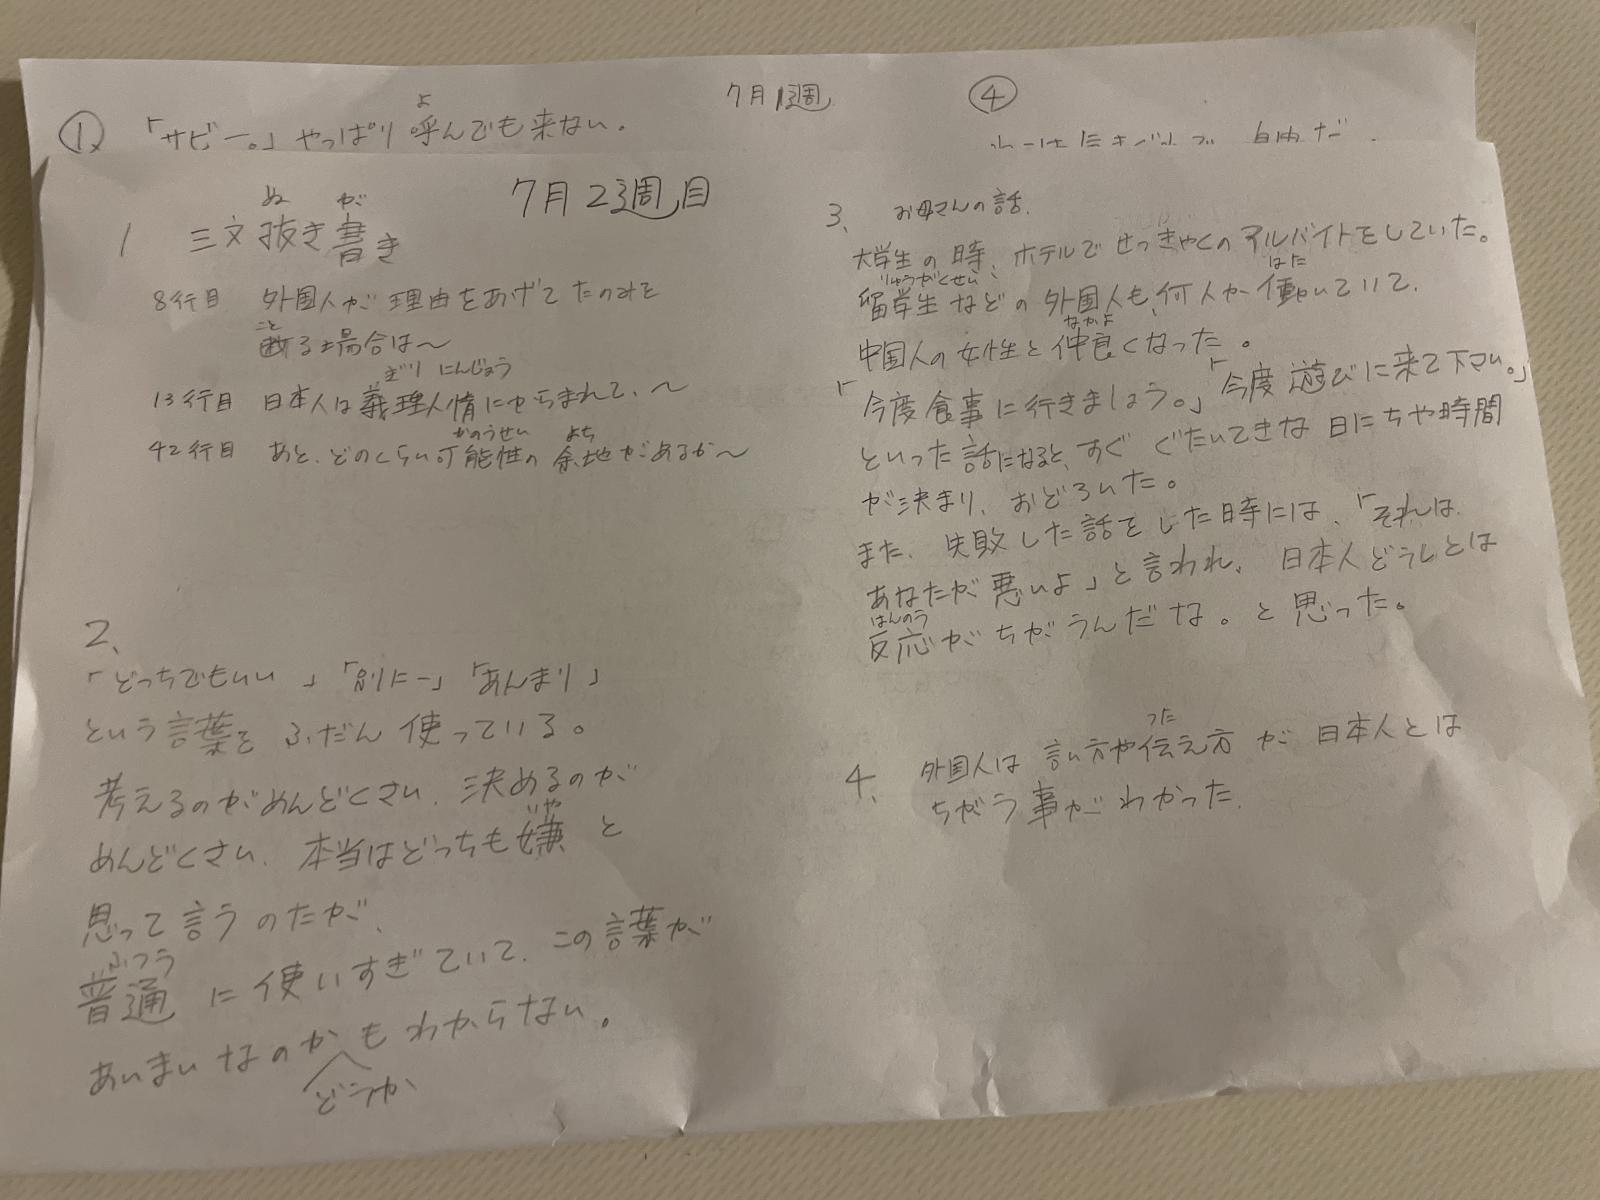 7月1週
① 「サビー。」やっぱり呼んでも来ない。
よ
④
7月2週目
1 三文抜き書き
ぬ が
8行目 外国人が理由をあげてたのみを
断る場合は〜
こと
13行目 日本人は義理人情にからまれて、〜
ぎり にんじょう
42行目 あと、どのくらい可能性の余地があるか〜
かのうせい よち
2、
「どっちでもいい」「別にー」「あんまり」
という言葉をふだん使っている。
考えるのがめんどくさい、決めるのが
めんどくさい、本当はどっちも嫌と
いや
思って言うのだが、
普通に使いすぎていて、この言葉が
ふつう
あいまいなのかもわからない。
どうか
3、 お母さんの話。
大学生の時、ホテルでせっきゃくのアルバイトをしていた。
留学生などの外国人も、何人か働いていて、
りゅうがくせい はた
中国人の女性と仲良くなった。
なかよ
「今度食事に行きましょう。」「今度遊びに来て下さい。」
といった話になると、すぐぐたいてきな日にちや時間
が決まり、おどろいた。
また、失敗した話をした時には、「それは
あなたが悪いよ」と言われ、日本人どうしとは
反応がちがうんだな。と思った。
はんのう
4、 外国人は言い方や伝え方が日本人とは
つた
ちがう事がわかった。